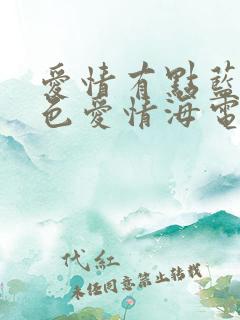 愛情有點藍
色愛情海電
代紅
未經同意禁止轉載